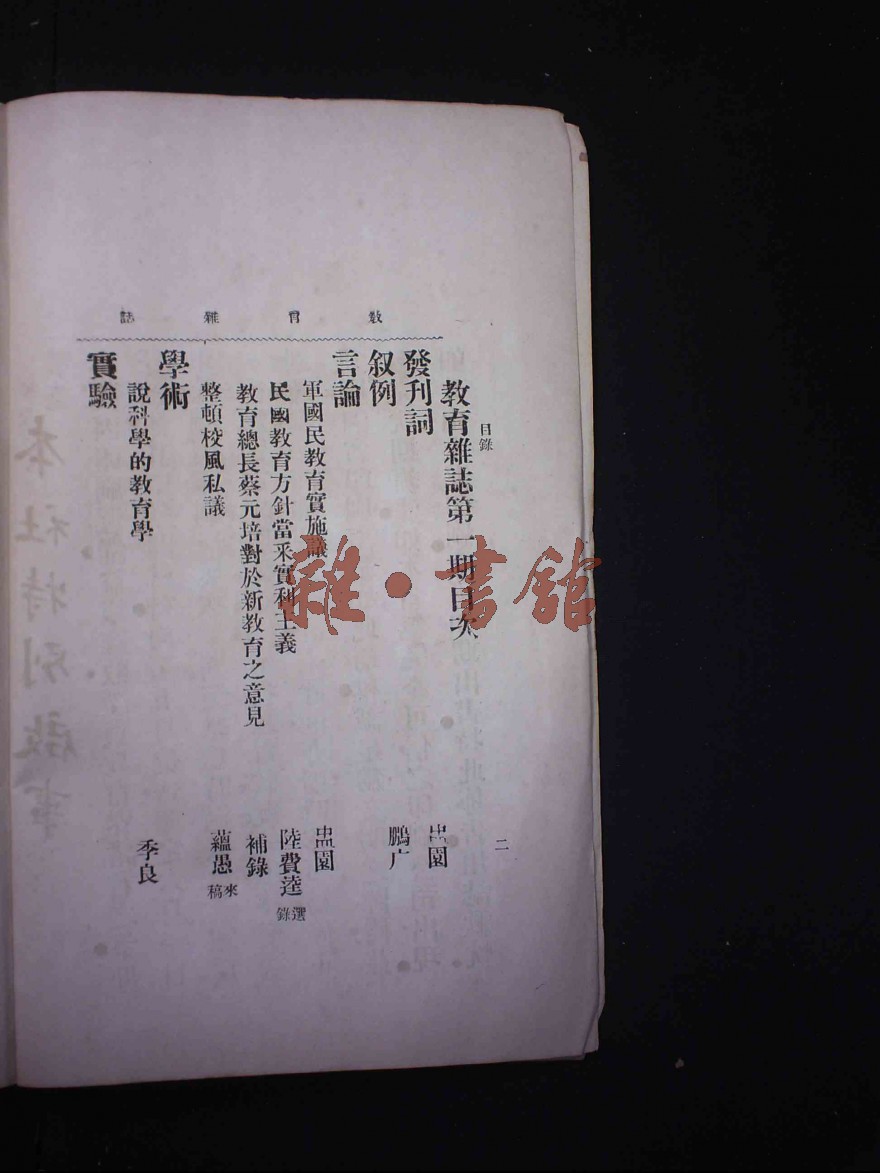 教育雜誌
目錄 二
教育雜誌第一期目次
發刊詞
叙例 鵬广
言論
軍國民教育實施議
民國教育方針當釆實利主義 陸費逵 選錄
教育總長蔡元培對於新教育之意見 補錄
整頓校風私議 蘊愚 來稿
學術
說科學的教育學 季良
實驗
雜·書館
本社特別啟事